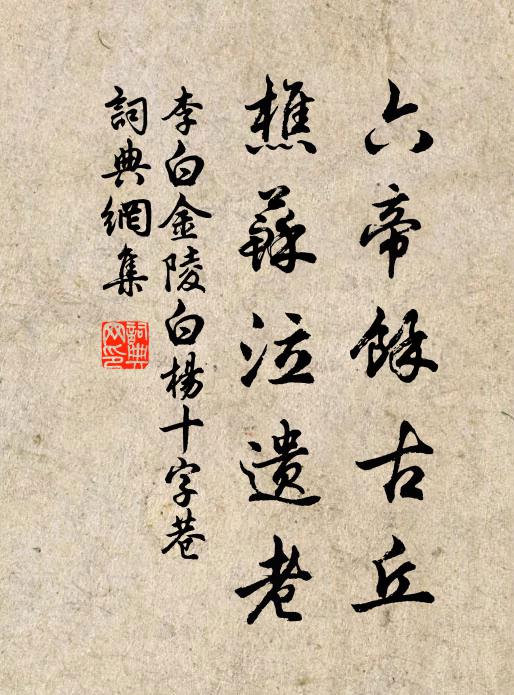 六帝餘古丘
樵蘇泣遺老
李白金陵白楊十字巷
詞典網集
詞典網印